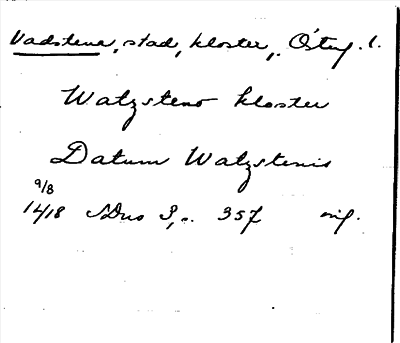 Vadstena, stad, kloster, Österg. l.
Watzsteno kloster
Datum Watzstenis
9/8
1418 SDns 3, s. 357 orig.